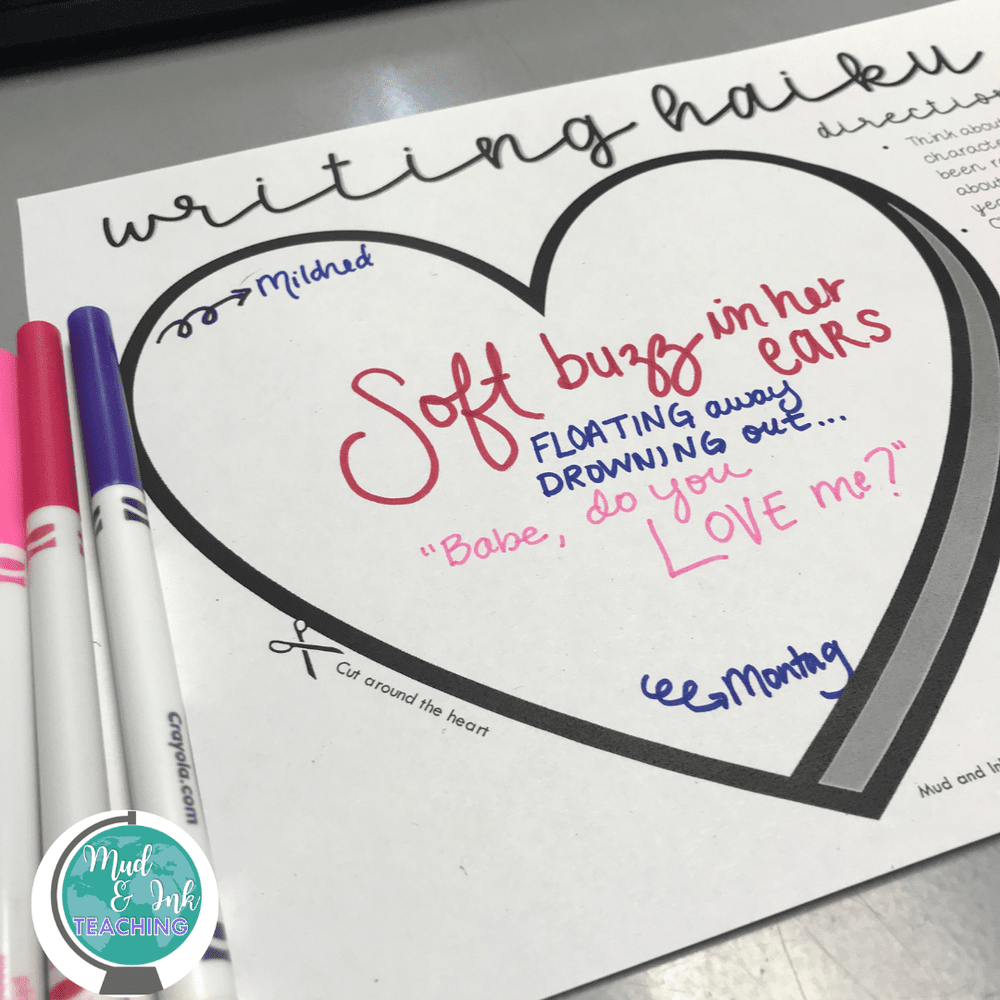 writing haiku
direction
Think about
charact
been r
about
yea
Mildred
Soft buzz in her
ears
FLOATING away
DROWNING out...
"Babe, do you
LOVE me?"
Montag
Cut around the heart
Mud and In
Crayola.com
Mud
& Ink
TEACHING